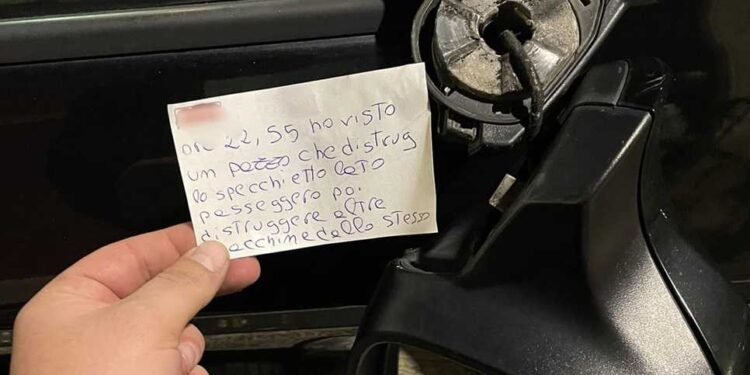 ore 22,55 ho visto
un pazzo che distrug
lo specchietto lato
passeggero poi
distruggere altre
macchine dello stesso